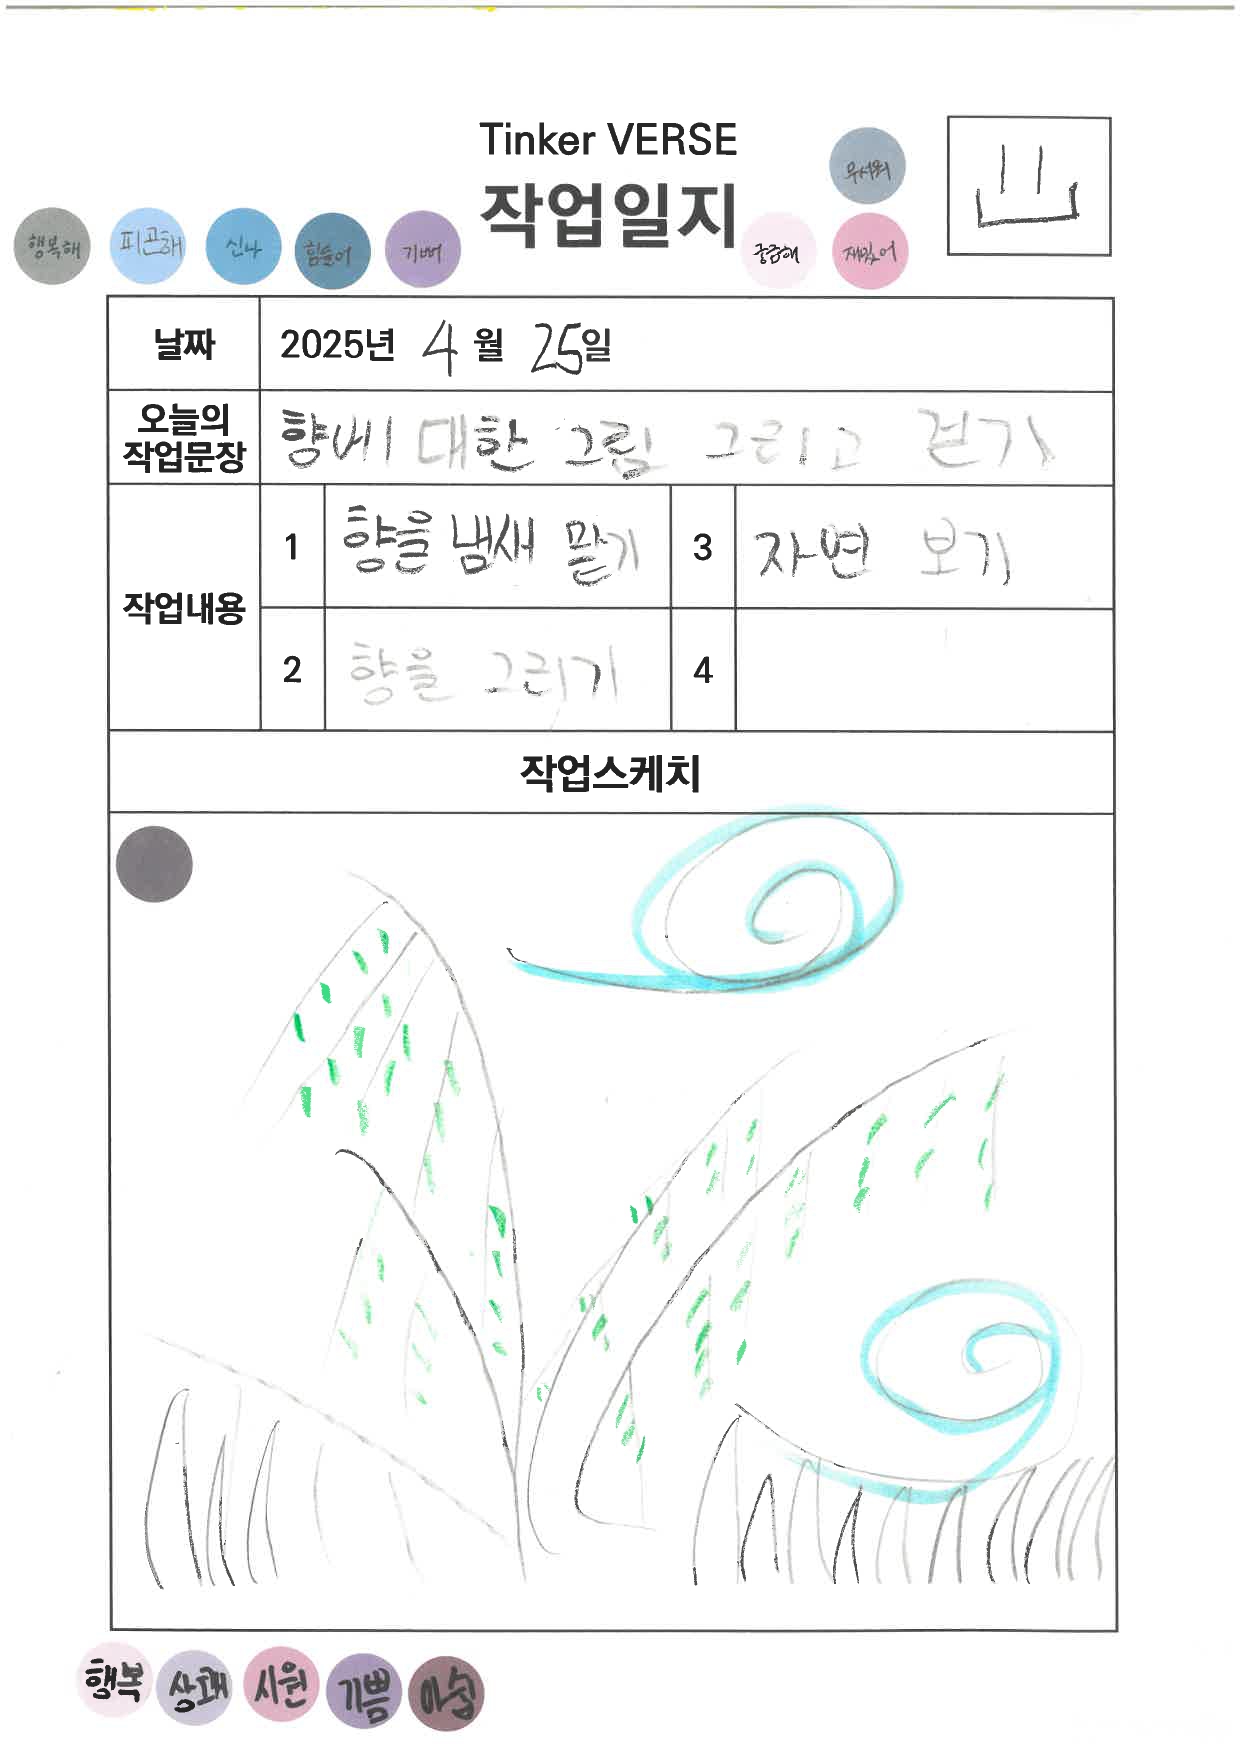 Tinker VERSE
작업일지
무서워
행복해 피곤해 신나 힘들어 기뻐 궁금해 재밌어
날짜 2025년 4월 25일
오늘의 작업문장 향베 대한 그림 그리고 걷기
작업내용
1 향을 냄새 맡기
2 향을 그리기
3 자연 보기
4
작업스케치
행복 상쾌 시원 기쁨 아쉽